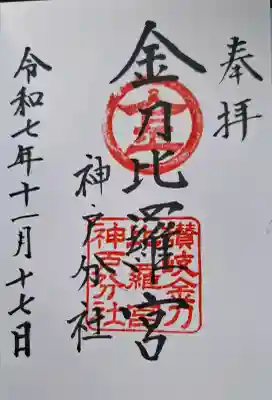 奉拝
金刀比羅宮
神戸分社
令和七年十一月十七日
金
讃岐金刀
比羅宮
神戸分社